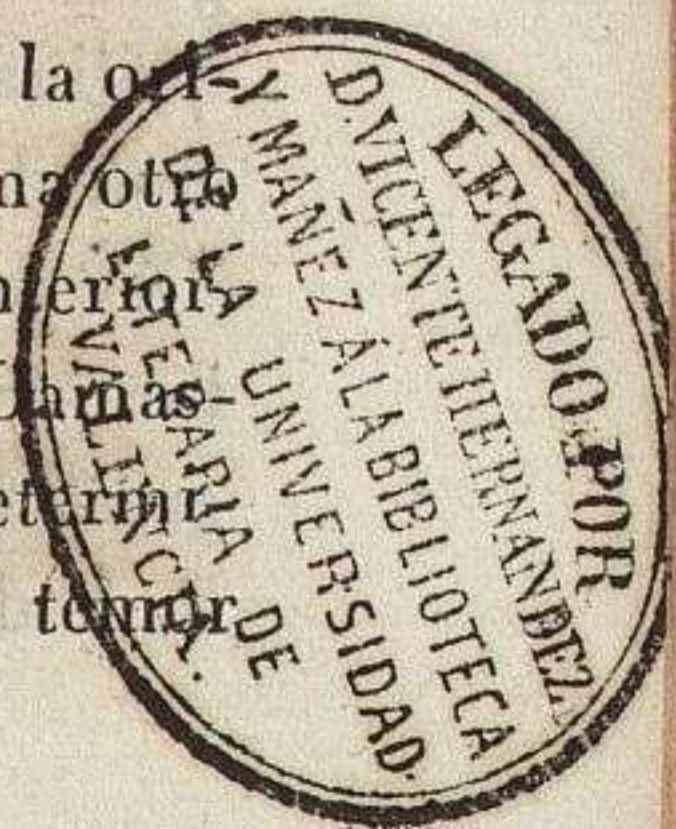 la ori-
otro
nterior
Damas-
etermi
temor
LEGADO POR
D. VICENTE HERNANDEZ
Y MAÑEZ Á LA BIBLIOTECA
DE LA UNIVERSIDAD
LITERARIA DE
VALENCIA.